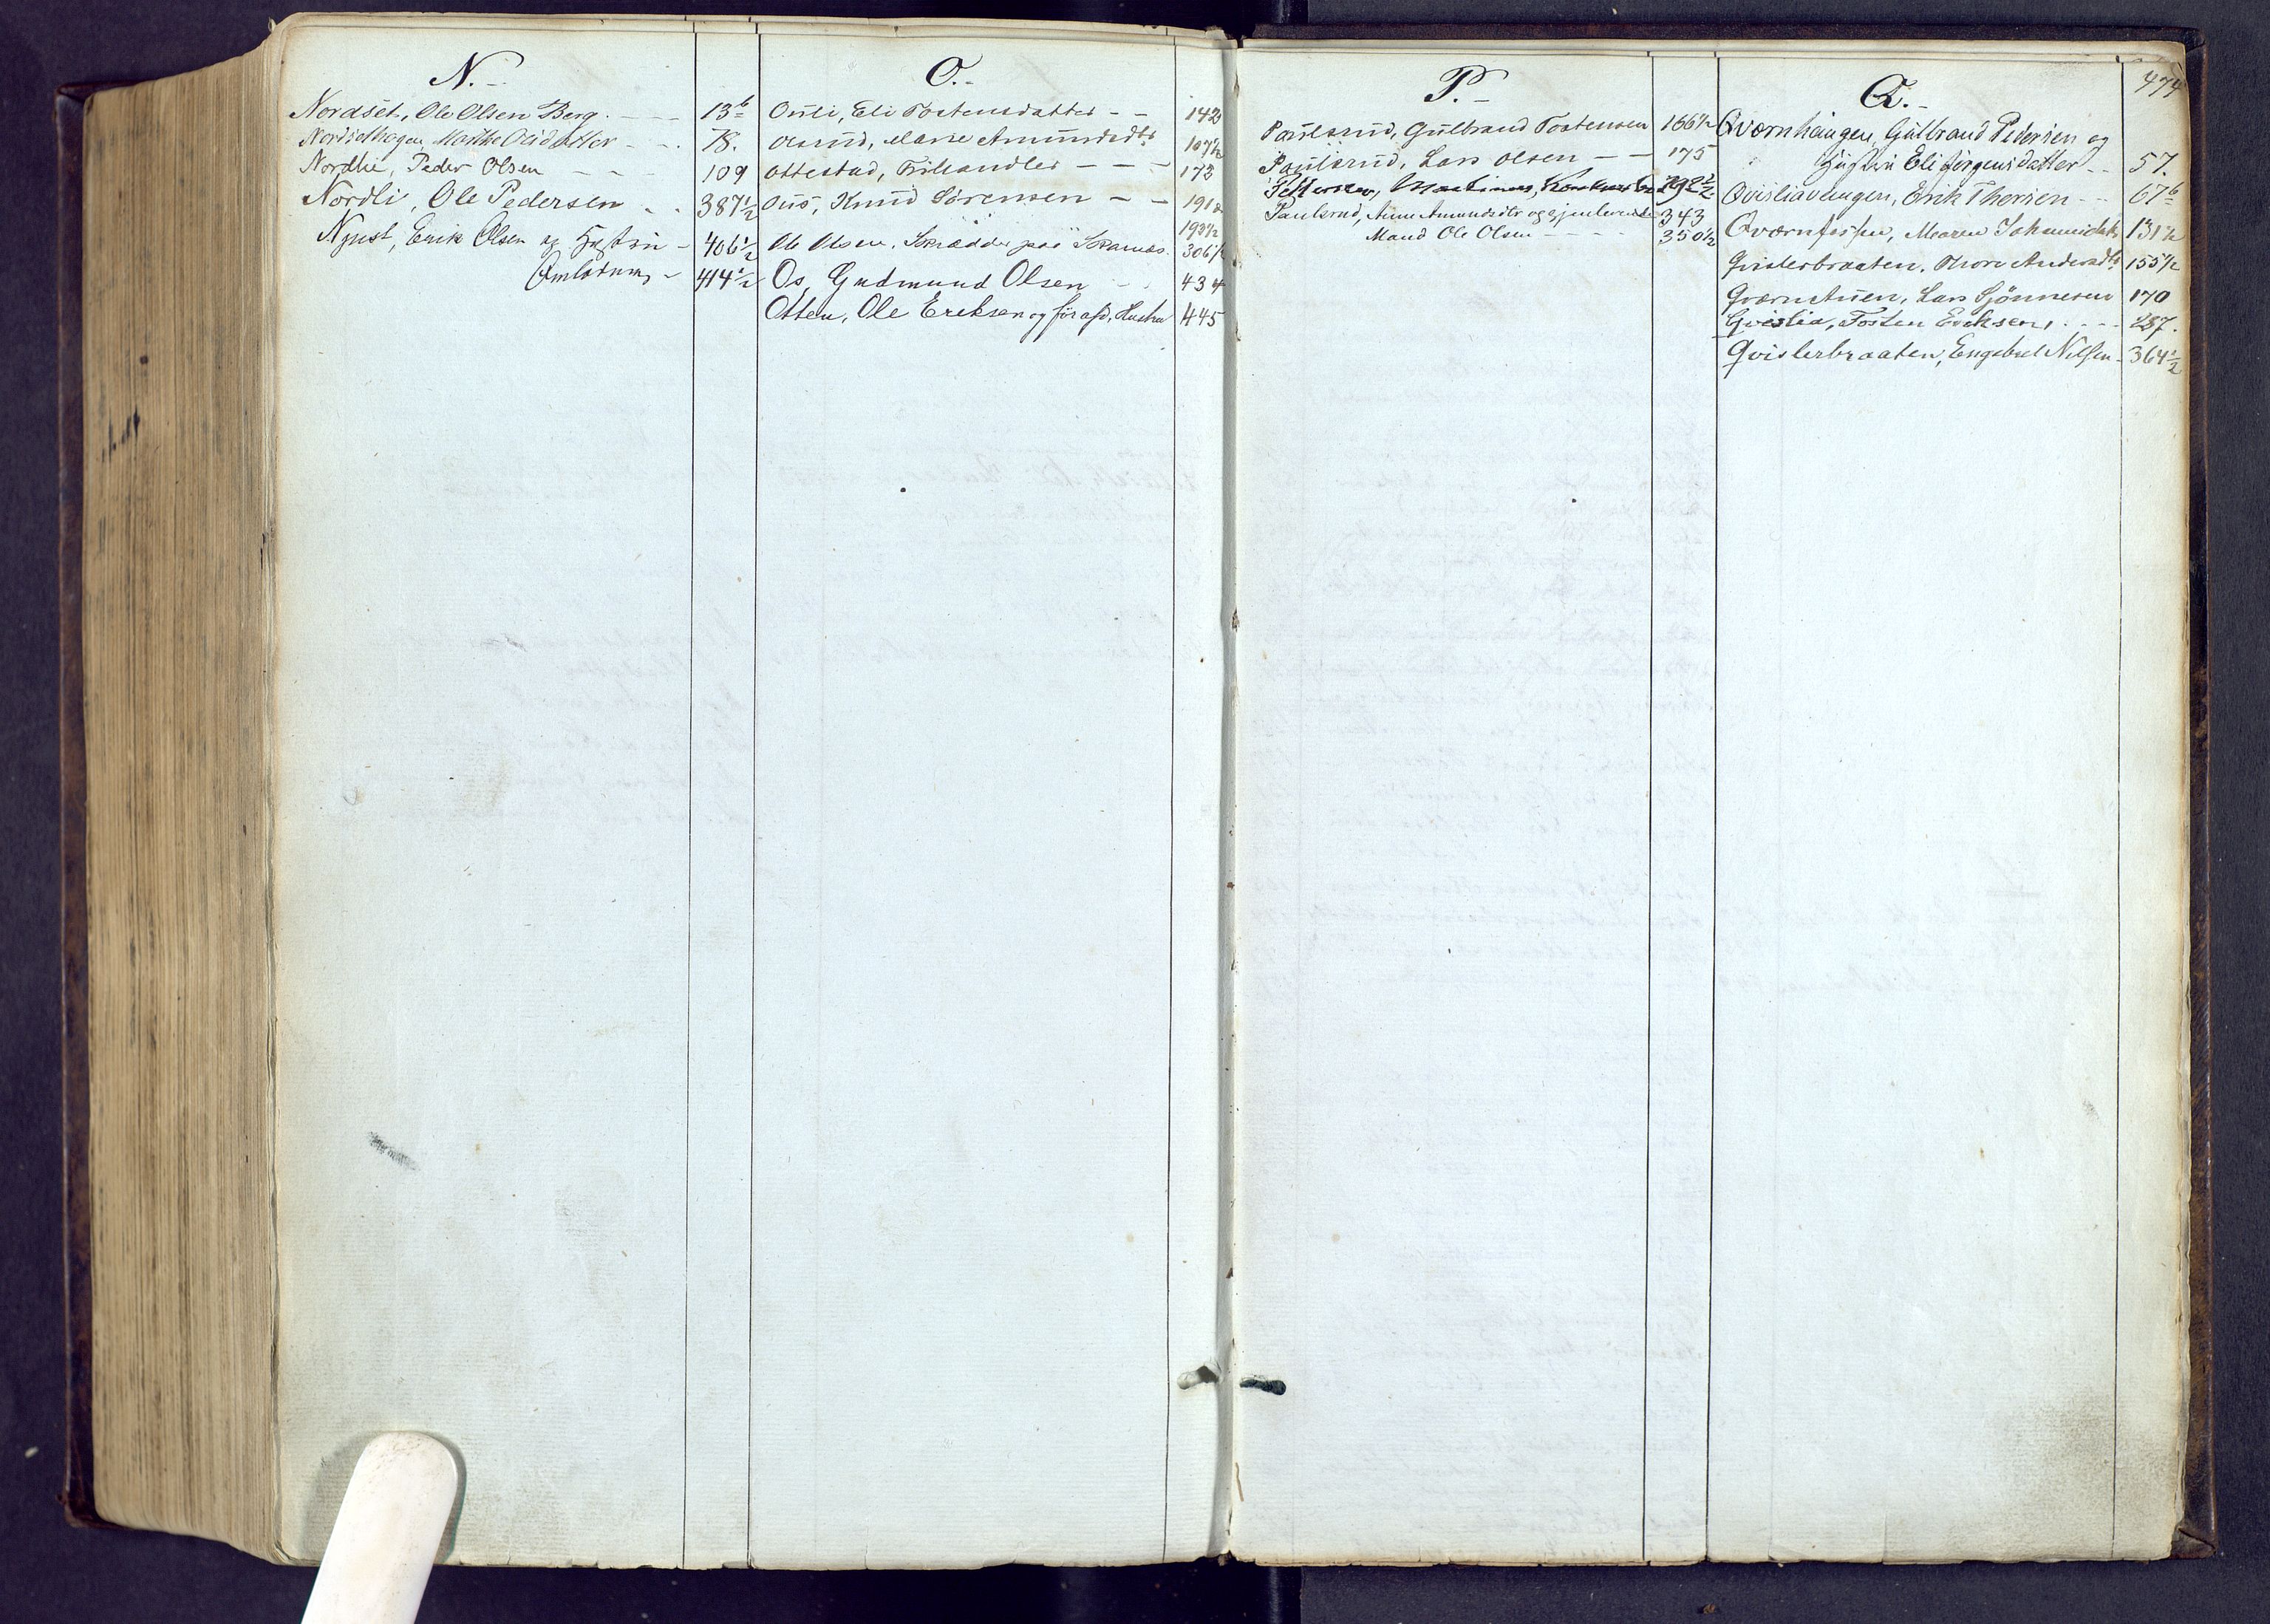 N.
Nordset, Ole Olsen Berg. 13 b
Nordsethagen, Marthe Olsdatter 78.
Nordlie, Peder Olsen 109
Nordli, Ole Pedersen 387½
Njust, Erik Olsen og Hustru 406½
Omlødning 414½
O.
Ousli, Eli Tostensdatter 142
Olsrud, Marie Amundsdtr 107½
Ottestad, Frihandler 172
Ous, Knud Sörensen 191
193½
Ole Olsen, Skrædder paa Skarnæs. 306½
Os, Gudmund Olsen 434
Otten, Ole Eriksen og før afd. Hustru 445
P.
Paulsrud, Gulbrand Tostensen 166½
Paulsrud, Lars Olsen 175
Pettersen, Martinus, 292½
Paulsrud, Anne Amundsdtr og gjenlevende 343
Mand Ole Olsen 350½
Q.
474
Qværnhaugen, Gulbrand Pedersen og
Hustru Eli Jörgensdatter 57.
Qvisliavengen, Erik Thersen 67 b
Qværnfossen, Maren Johannesdtr 131½
Qvislerbraaten, Thore Andersdtr 155½
Qværnstuen, Lars Sjönnesen 170
Qvislia, Tosten Eriksen, 237.
Qvislerbraaten, Engebret Nilsen 364½